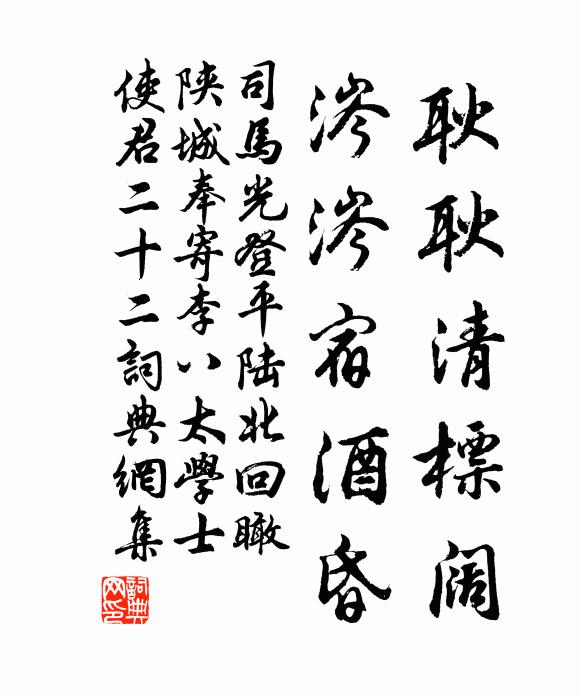 耿耿清標阔
涔涔宿酒昏
司馬光登平陆北回瞰
陕城奉寄李八太學士
使君二十二詞典網集
詞典
网印